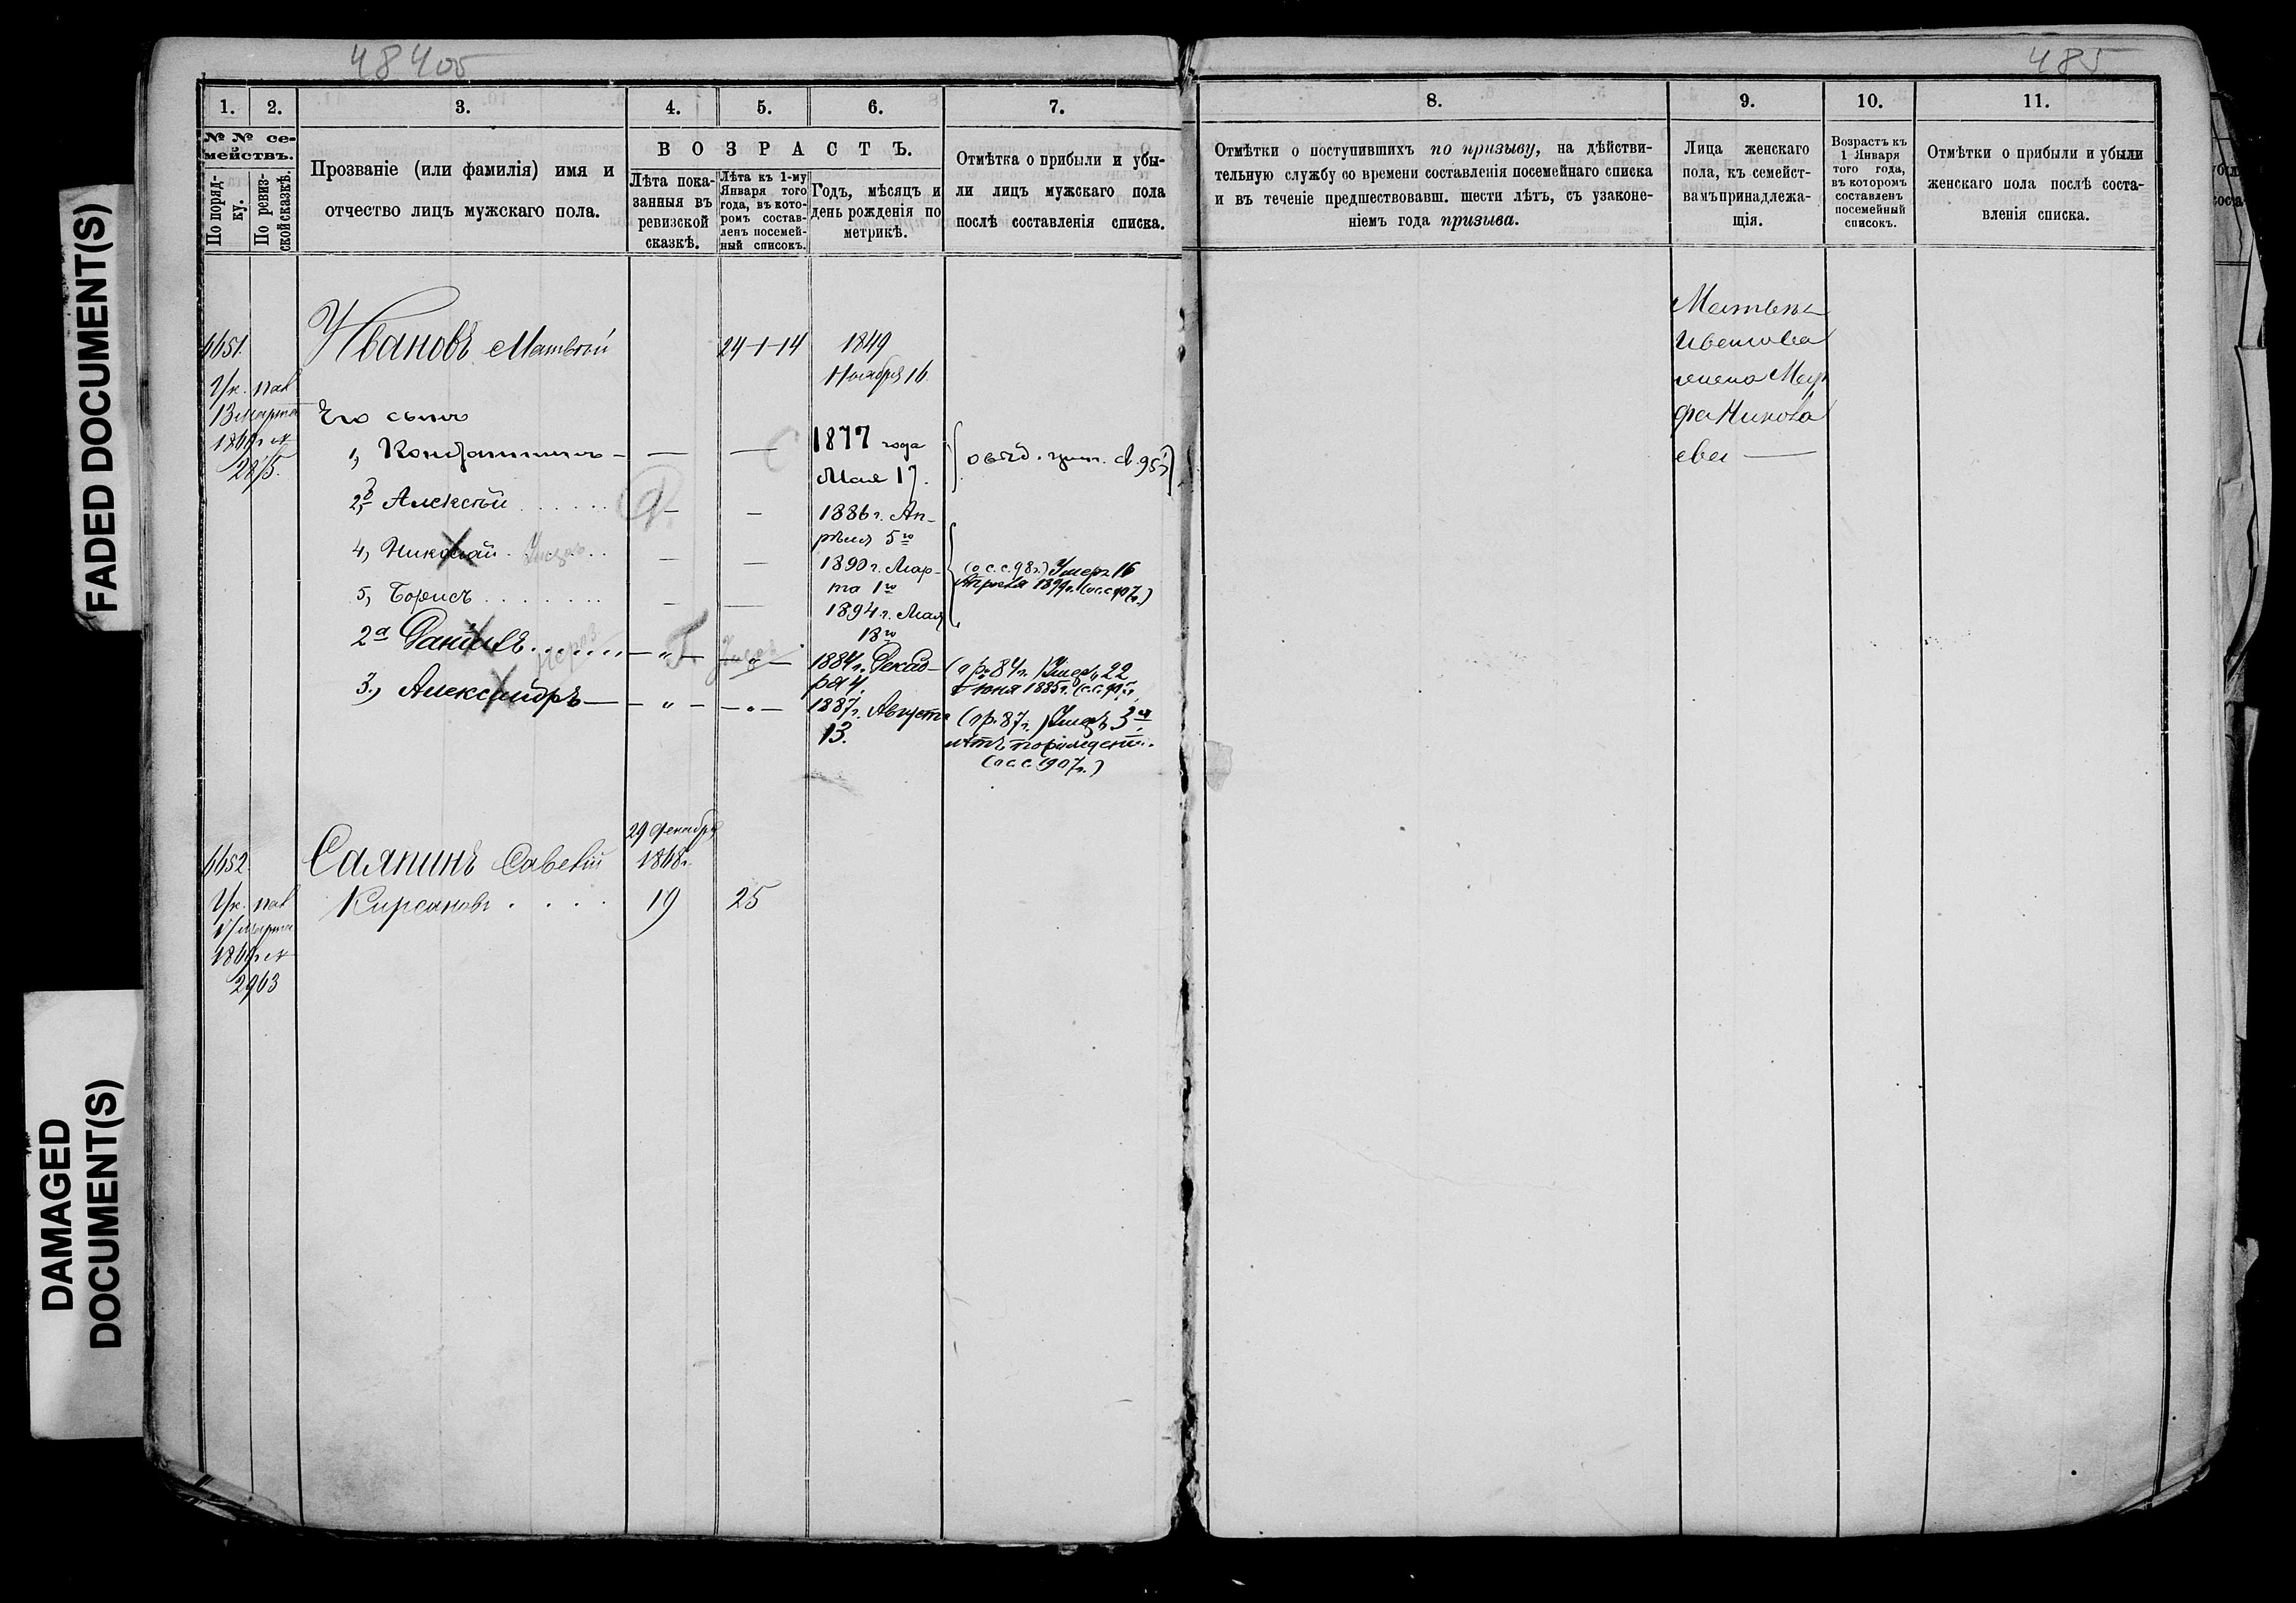 484об
485
1.
2.
3.
4.
5.
6.
7.
№ № се-
мействъ.
По поряд-
ку.
По ревиз-
ской сказкѣ.
Прозваніе (или фамилія) имя и
отчество лицъ мужскаго пола.
ВОЗРАСТЪ.
Лѣта пока-
занныя въ
ревизской
сказкѣ.
Лѣта къ 1-му
Января того
года, въ кото-
ромъ состав-
ленъ посемей-
ный списокъ.
Годъ, мѣсяцъ и
день рожденія по
метрикѣ.
Отмѣтка о прибыли и убы-
ли лицъ мужскаго пола
послѣ составленія списка.
6651.
Ук. пал
13 марта
186 г №
2875.
Ивановъ Матвѣй
24-1-14
1849
Ноября 16.
Его сынъ
1, Константинъ
1877 года
Мая 17.
2, Алексѣй
1886 г. Ап-
рѣля 5го
4, Николай. Умеръ
1890 г. Мар-
та 1го
(о с. с. 98 г.) Умеръ 16
Апрѣля 1899 г. (о с с 907 г.)
5, Борисъ
1894 г. Мая
18го
2а Даніилъ
1884 г. Декаб-
ря 4.
(пр. 84 г.) Умеръ 22
Іюня 1885 г.
3, Александръ
1887 г. Августа
13.
(пр. 87 г.) Умеръ 3хъ
лѣтъ
(о с с. 1907 г.)
6652
Ук. пал
марта
186 г №
2963
Саяпинъ Савелій
Кирсановъ
29 декабря
1868 г.
19
25
8.
9.
10.
11.
Отмѣтки о поступившихъ по призыву, на дѣйстви-
тельную службу со времени составленія посемейнаго списка
и въ теченіе предшествовавш. шести лѣтъ, съ узаконе-
ніемъ года призыва.
Лица женскаго
пола, къ семейст-
вамъ принадлежа-
щія.
Возрастъ къ
1 Января
того года,
въ которомъ
составленъ
посемейный
списокъ.
Отмѣтки о прибыли и убыли
женскаго пола послѣ соста-
вленія списка.
Матвѣя
Иванова
жена Мар
фа Никола
ева
FADED DOCUMENT(S)
DAMAGED
DOCUMENT(S)